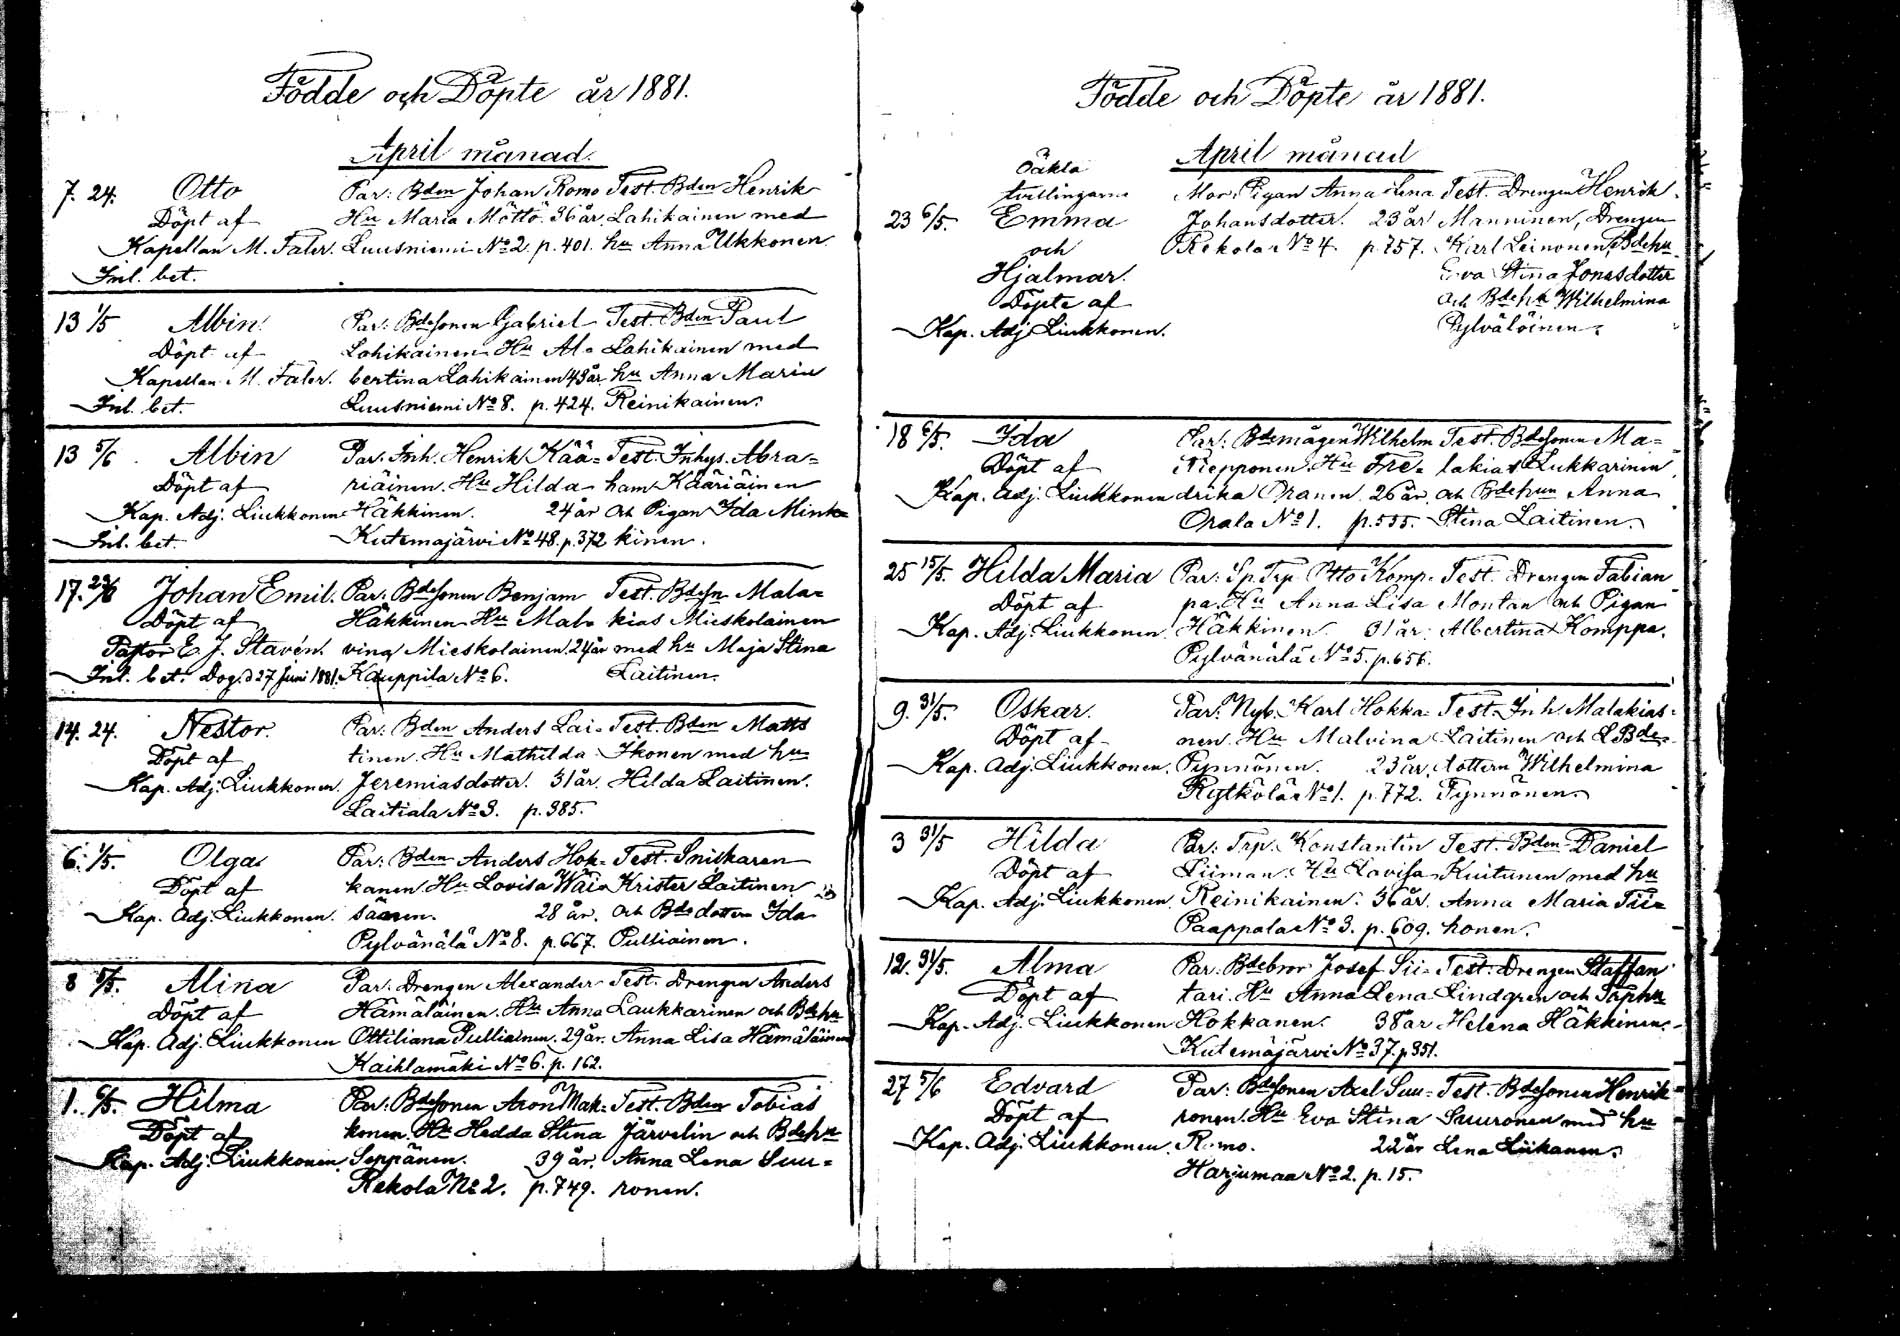 Födde och Döpte år 1881.
April månad.
7. 24. Otto Par: Bden Johan Romo Test. Bden Henrik
Döpt af Hu Maria Möttö. 36 år. Lahikainen med
Kapellan M. Faler. Luusniemi No 2. p. 401. hu Anna Ukkonen.
Inl. bet.
13 1/5 Albin. Par: Bdesonen Gabriel Test. Bden Paul
Döpt af Lahikainen Hu Al= Lahikainen med
Kapellan M. Faler. bertina Lahikainen 43 år. hu Anna Maria
Inl. bet. Luusniemi No 8. p. 424. Reinikainen.
13 5/6 Albin Par: Inh. Henrik Kää= Test. Inhys. Abra=
Döpt af riäinen. Hu Hilda ham Kääriäinen
Kap. Adj. Liukkonen Häkkinen. 24 år och Pigan Ida Mink=
Inl. bet. Kutemajärvi No 48. p. 372 kinen.
17. /6 Johan Emil. Par: Bdesonen Benjam Test. Bdesn Mala=
Döpt af Häkkinen Hu Mal= kias Mieskolainen
Pastor E. J. Stavén. vina Mieskolainen. 24 år med hu Maja Stina
Inl. bet. Dog. d 27 Juni 1881. Kauppila No 6. Laitinen.
14. 24. Nestor. Par: Bden Anders Lai= Test. Bden Matts
Döpt af tinen. Hu Mathilda Ikonen med hu
Kap. Adj. Liukkonen. Jeremiasdotter. 31 år. Hilda Laitinen.
Laitiala No 3. p. 385.
6. 1/5. Olga Par: Bden Anders Hok= Test. Snikaren
Döpt af kanen Hu Lovisa Wäi= Krister Laitinen
Kap. Adj. Liukkonen. säinen. 28 år. och Bdedottern Ida
Pylvänälä No 8. p. 667. Pulliainen.
8 /5. Alina Par: Drengen Alexander Test. Drengen Anders
Döpt af Hämäläinen. Hu Anna Laukkarinen och Bdehu
Kap. Adj. Liukkonen Ottiliana Pulliainen. 29 år. Anna Lisa Hämäläinen
Kaihlamäki No 6. p. 162.
1. 6/5. Hilma Par: Bdesonen Aron Mak= Test. Bden Tobias
Döpt af konen. Hu Hedda Stina Järvelin och Bdehu
Kap. Adj. Liukkonen Seppänen. 39 år. Anna Lena Suu=
Rekola No 2. p. 749. ronen.
Födde och Döpte år 1881.
April månad
Oäkta
tvillingarne Mor: Pigan Anna Lena Test. Drengen Henrik
23 6/5. Emma Johansdotter. 23 år Manninen, Drengen
och Rekola No 4. p. 757. Karl Leinonen, Bdehu
Hjalmar. Eva Stina Jonasdotter
Döpte af och Bdehu Wilhelmina
Kap. Adj. Liukkonen. Pylväläinen.
18 6/5. Ida Par: Bdemågen Wilhelm Test. Bdesonen Ma=
Döpt af Nepponen Hu Fre= lakias Lukkarinen
Kap. Adj. Liukkonen drika Oranen. 26 år. och Bdehun Anna
Orala No 1. p. 555. Stina Laitinen.
25 15/5. Hilda Maria Par: Sp. Trp. Otto Komp= Test. Drengen Fabian
Döpt af pa. Hu Anna Lisa Montan och Pigan
Kap. Adj. Liukkonen. Häkkinen. 31 år. Albertina Komppa.
Pylvänälä No 5. p. 656.
9. 31/5. Oskar. Par: Nyb. Karl Hokka= Test. Inh. Malakias
Döpt af nen. Hu Malvina Laitinen och L Bde=
Kap. Adj. Liukkonen. Pynnönen. 23 år. dottern Wilhelmina
Rytkölä No 1. p. 772. Pynnönen.
3 31/5 Hilda Par: Trp. Konstantin Test. Bden Daniel
Döpt af Siiman. Hu Lovisa Kuitunen med hu
Kap. Adj. Liukkonen. Reinikainen. 36 år. Anna Maria Tii=
Paappala No 3. p. 609. honen.
12. 31/5. Alma Par: Bdebror Josef Sii= Test. Drengen Staffan
Döpt af tari. Hu Anna Lena Lindgren och Trphu
Kap. Adj. Liukkonen Hokkanen. 38 år Helena Häkkinen.
Kutemajärvi No 37. p 351.
27 5/6 Edvard Par: Bdesonen Axel Suu= Test. Bdesonen Henrik
Döpt af ronen. Hu Eva Stina Suuronen med hu
Kap. Adj. Liukkonen. Romo. 22 år Lena Liikanen.
Harjumaa No 2. p. 15.